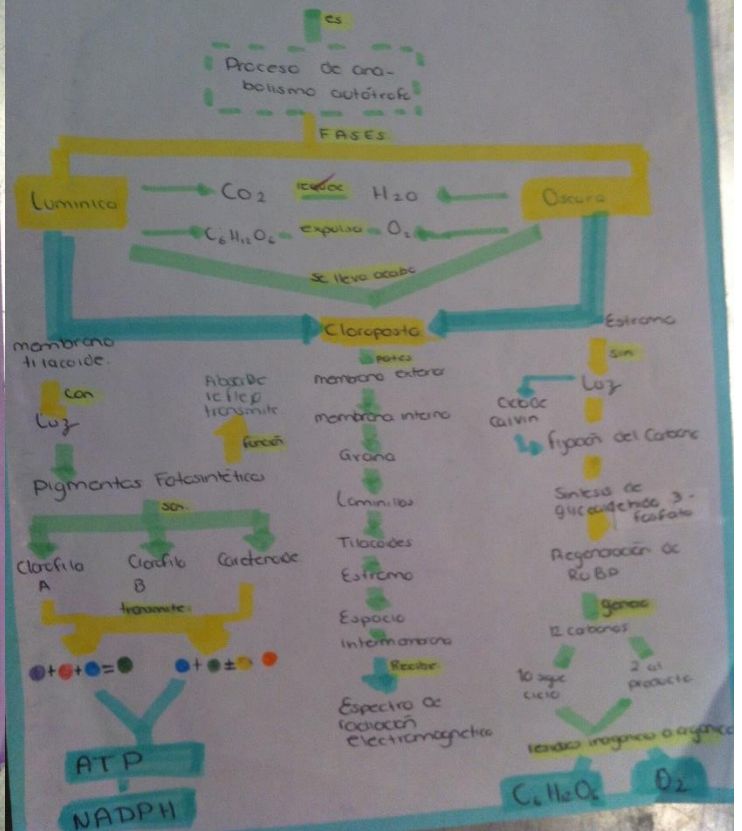 es
Proceso de ana-
bolismo autótrofo
FASES
Luminica
CO2
H2O
Oscura
C6H12O6
expulsa
O2
se lleva acabo
Cloroplasto
membrana
tilacoide.
Con
Luz
Pigmentos Fotosintéticos
función
Absorbe
reflep
transmite.
son
Clorofila
A
Clorofila
B
transmite
+ + =
+ ±
ATP
NADPH
partes
membrana externa
membrana interna
Grana
Laminillas
Tilacoides
Estroma
Espacio
Intermembrana
Recibe
Espectro de
radiación
electromagnetica
Estroma
sin
Luz
Ciclo de
calvin
fijación del Carbono
Sintesis de
gliceraldehido 3-
fosfato
Regeneración de
RuBP
genera
12 carbonos
10 sigue
ciclo
2 al
producto
inorganico o organico
C6H12O6
O2